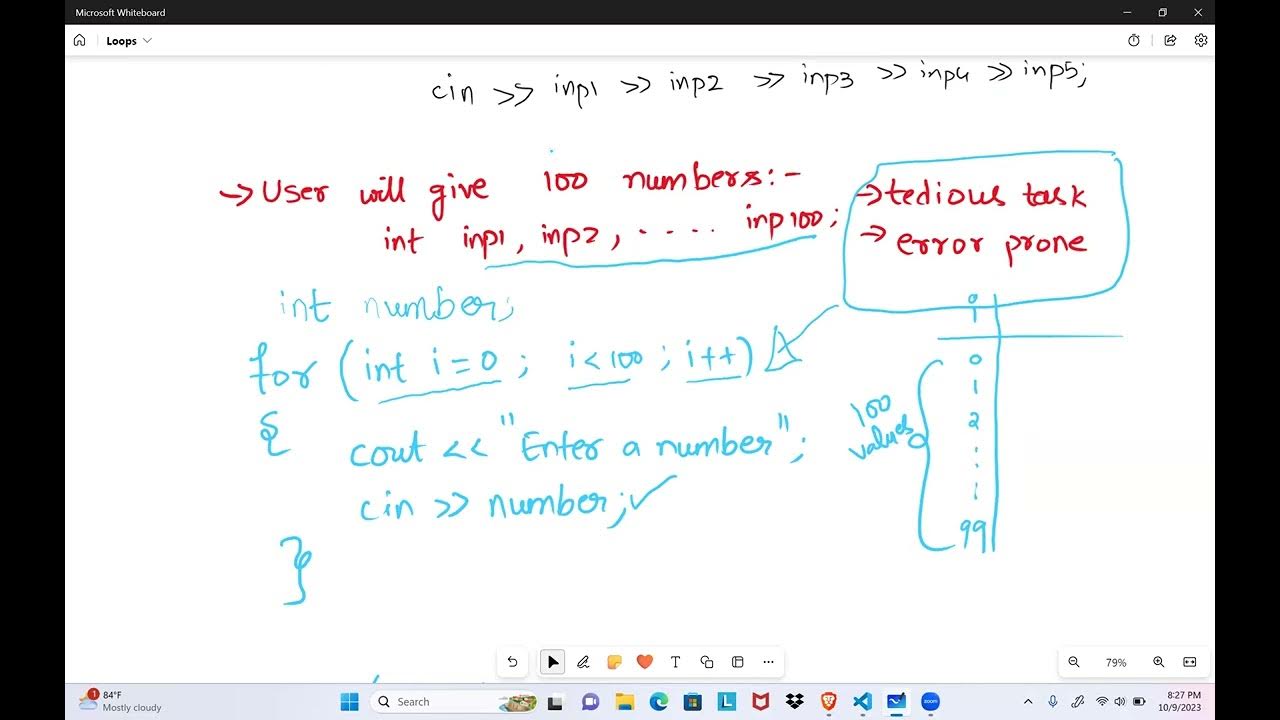 Microsoft Whiteboard
Loops
cin >> inp1 >> inp2 >> inp3 >> inp4 >> inp5;
→ User will give 100 numbers:-
int inp1, inp2, ..... inp100;
→ tedious task
→ error prone
int number;
for (int i=0; i<100; i++)
{
cout << "Enter a number";
cin >> number; ✓
}
i
0
1
2
:
:
99
100
values
79%
1
84°F
Mostly cloudy
Search
zoom
8:27 PM
10/9/2023